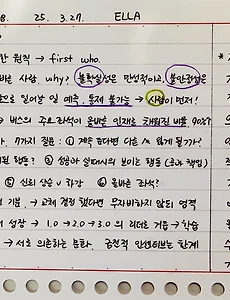 8. 25. 3.27. ELLA
한 원칙 → first who.
사람, why? 불확실성은 만성적이고, 불안정성은
으로 일어날 일 예측, 통제 불가능 → 사람이 먼저!
→ 버스의 주요 좌석이 올바른 인재로 채워진 비율 90%?
7가지 질문 : ① 계속 한다면 다음
행동? ③ 성공과 실패시의 보이는 행동 (공과 책임)
⑤ 신뢰 상승 v 하강 ⑥ 올바른 좌석?
기본, → 교체 결정 했다면 무자비하지 않되 엄격
성장 → 1.0 → 2.0 → 3.0 의 리더로 거듭 → 학습
→ 서로 의존하는 문화. 금전적 인센티브는 한계